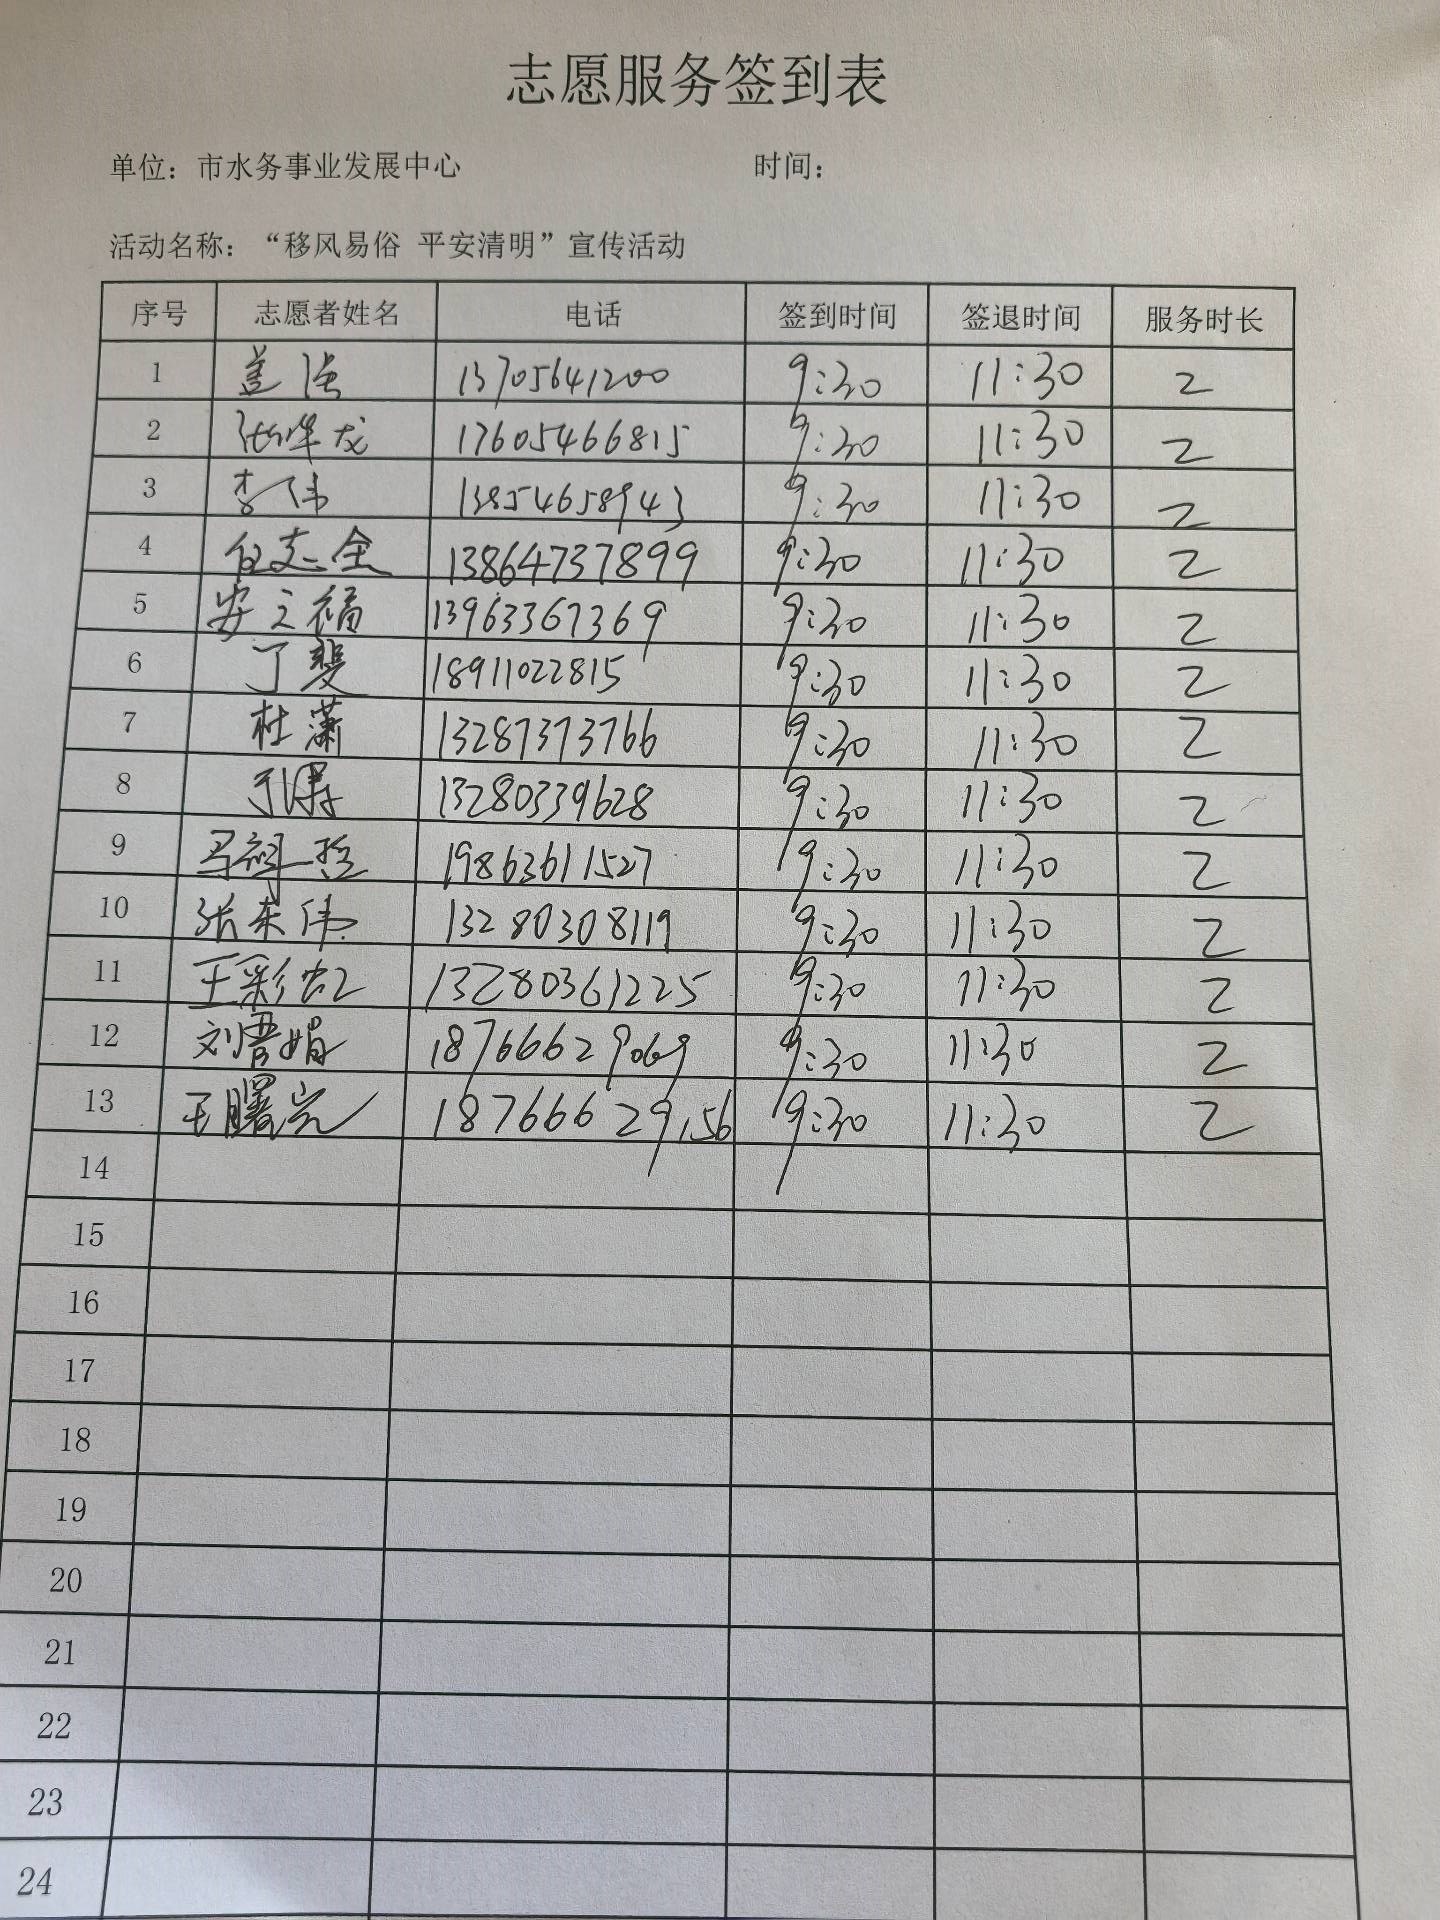 志愿服务签到表
单位：市水务事业发展中心 时间：
活动名称：“移风易俗 平安清明”宣传活动
序号 志愿者姓名 电话 签到时间 签退时间 服务时长
1 盖浩 13705641200 9:30 11:30 2
2 龙 17605466815 9:30 11:30 2
3 李伟 13854658943 9:30 11:30 2
4 任志全 13864737899 9:30 11:30 2
5 安立福 13963367369 9:30 11:30 2
6 丁斐 18911022815 9:30 11:30 2
7 杜潇 13287373766 9:30 11:30 2
8 13280339628 9:30 11:30 2
9 马 19863611527 9:30 11:30 2
10 张东伟 13280308119 9:30 11:30 2
11 王彩虹 13280361225 9:30 11:30 2
12 刘晋娟 18766629069 9:30 11:30 2
13 王曙光 18766629156 9:30 11:30 2
14
15
16
17
18
19
20
21
22
23
24